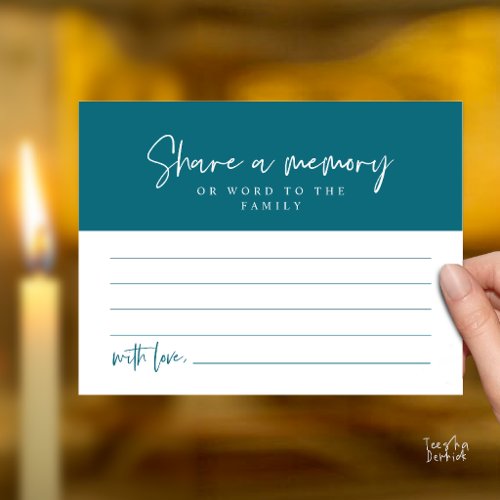 Share a memory
OR WORD TO THE
FAMILY
with love,
Teesha
Derrick